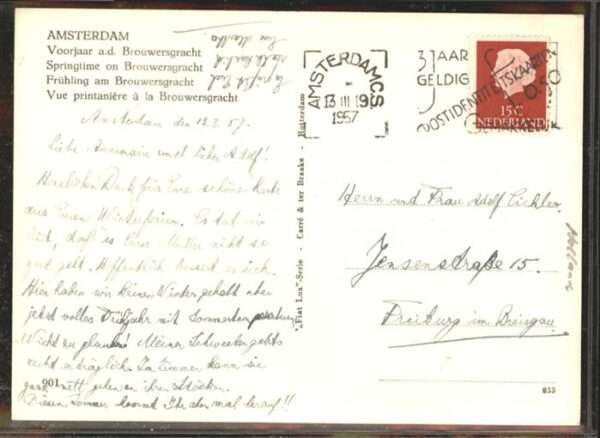 AMSTERDAM
Voorjaar a.d. Brouwersgracht
Springtime on Brouwersgracht
Frühling am Brouwersgracht
Vue printanière à la Brouwersgracht
Amsterdam den 12.3.57.
Liebe Annemarie und lieber Adolf!
Herzlichen Dank für Eure schöne Karte
aus Euren Winterferien. Es tut mir
leid, daß es Eurer Mutter nicht so
gut geht. Hoffentlich bessert es sich.
Hier haben wir keinen Winter gehabt aber
jetzt volles Frühjahr mit
Nicht zu glauben! Meiner Schwester gehts
recht erträglich. Im Zimmer kann sie
ganz nett gehen an ihren Stöcken.
Diesen Sommer kommt Ihr aber mal herauf!!
901
"Fiat Lux"-Serie - Carré & ter Braake - Rotterdam
AMSTERDAM C.S.
13 III 19
1957
3 JAAR
GELDIG
POSTIDENTITEITSKAARTEN
15 c
NEDERLAND
Herrn und Frau Adolf Eichler
Jensenstraße 15.
Freiburg im Breisgau.
Holland
053